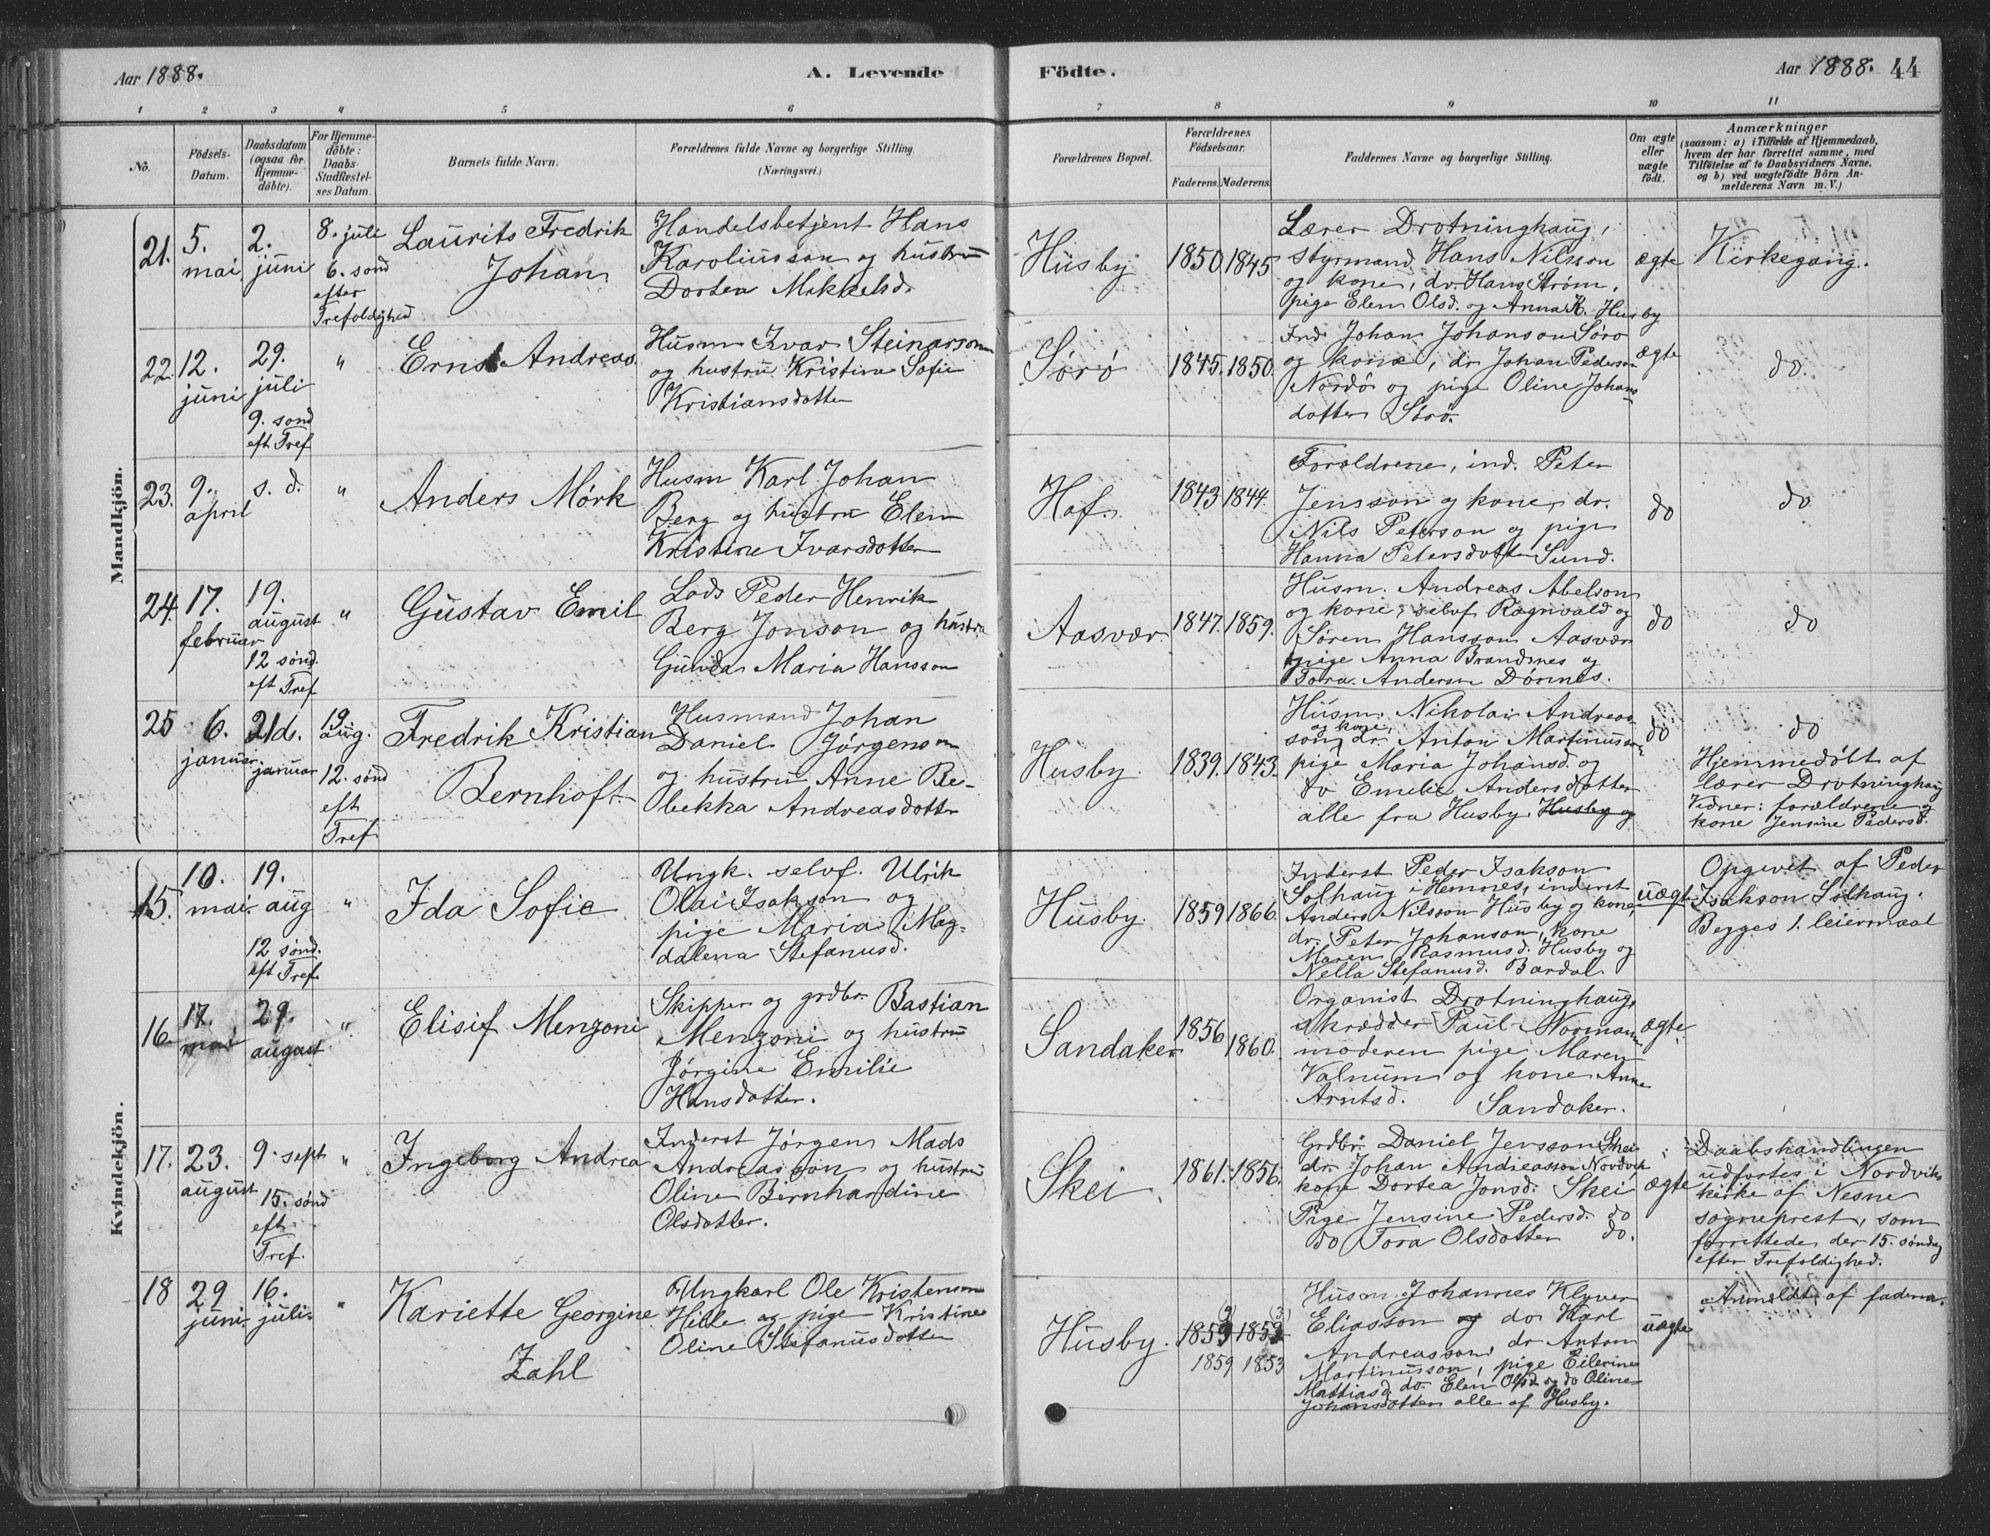 Aar 1888. A. Levende Födte. Aar 1888. 44
1 2 3 4 5 6 7 8 9 10 11
No.
Födsels-
Datum.
Daabsdatum
(ogsaa for
Hjemme-
döbte).
For Hjemme-
döbte:
Daabs-
Stadfæstel-
ses Datum.
Barnets fulde Navn.
Forældrenes fulde Navne og borgerlige Stilling.
(Næringsvei.)
Forældrenes Bopæl.
Forældrenes
Födselsaar.
Faderens. Moderens.
Faddernes Navne og borgerlige Stilling.
Om ægte
eller
uægte
födt.
Anmærkninger
(saasom: a) i Tilfælde af Hjemmedaab,
hvem der har forrettet samme, med
Tilföielse af to Daabsvidners Navne,
og b) ved uægtefödte Börn An-
melderens Navn m. V.)
Mandkjön.
21.
5.
mai
2.
juni
8. juli
6. sønd
efter
Trefoldighed
Laurits Fredrik
Johan
Handelsbetjent Hans
Karoliusson og hustru
Dortea Mikkelsd.
Husby
1850 1845
Lærer Drotninghaug,
styrmand Hans Nilsson
og kone, dr. Hans Strøm,
pige Elen Olsd. og Anna K. Husby
ægte
Kirkegang.
22.
12.
juni
29.
juli
9. sønd
eft Tref
"
Ernst Andreas.
Husm Ivar Steinarson
og hustru Kristine Sofie
Kristiansdotter
Sørø
1845. 1850.
Ind Johan Johanson Sørø
og kone, dr Johan Pederson
Nordø og pige Oline Johans
dotter Sørø.
ægte
do.
23.
9.
april
s. d.
"
Anders Mørk
Husm Karl Johan
Berg og hustru Elen
Kristine Ivarsdotter
Hof.
1843 1844.
Forældrene, ind. Peter
Jensson og kone, dr.
Nils Peterson og pige
Hanna Petersdotter Sund.
do
do
24.
17.
februar
19.
august
12 sønd.
eft Tref
"
Gustav Emil
Lods Peder Henrik
Berg Jonson og hustru
Gunda Maria Hansson
Aasvær
1847. 1859.
Husm. Andreas Abelson
og kone, selvf Ragnvald og
Søren Hansson Aasvær
pige Anna Brandsnes og
Tora Anderson Dønnes.
do
do
25
6.
januar.
21ds.
januar
19
aug.
12. sønd
eft
Tref
Fredrik Kristian
Bernhoft
Husmand Johan
Daniel Jørgenson
og hustru Anne Be-
bekka Andreasdotter
Husby
1839. 1843.
Husm. Nikolai Andreas-
son og kone, dr. Anton Martinusson
pige Maria Johansd. og
do Emelie Andersdotter
alle fra Husby. Husby og
do
do
Hjemmedøbt af
lærer Drotninghaug
Vidner: forældrene og
kone Jensine Pedersd.
Kvindekjön.
15.
10.
mai.
19.
aug
12 sønd.
eft Tref
"
Ida Sofie
Ungk. selvf. Ulrik
Olai Isakson og
pige Maria Mag-
dalena Stefanusd.
Husby.
1859 1866.
Inderst Peder Isakson
Solhaug i Hemnes, inderst
Anders Nilsson Husby og kone,
dr. Peter Johanson, kone
Maren Rasmusd. Husby og
Nella Stefanusd. Bardal
uægte
Opgivet af Peder
Isakson Solhaug.
Begges 1. leiermaal
16.
17.
29.
august
"
Elisif Menzoni
Skipper og grdbr. Bastian
Menzoni og hustru
Jørgine Emilie
Hansdotter.
Sandaker
1856 1860.
Organist Drotninghaug,
skrædder Paul Norman
moderen pige Maren
Valnum og kone Anne
Arntsd. Sandaker.
ægte
17.
23.
august
9. sept
15. sønd
eft
Tref.
"
Ingeborg Andrea
Inderst Jørgen Mads
Andreasson og hustru
Oline Bernhardine
Olsdotter.
Skei
1861. 1856.
Grdbr. Daniel Jensson Skei
dr. Johan Andreasson Nordvik
kone Dortea Jonsd. Skei
Pige Jensine Pedersd. do
do Tora Olsdotter do.
ægte
Daabshandlingen
udførtes i Nordviks
kirke af Nesne
sogneprest, som
forrettede der 15. søndag
efter Trefoldighed.
18
29
juni
16.
juli
"
Kariette Georgine
Zahl
Ungkarl Ole Kristenson
Hille og pige Kristine
Oline Stefanusdotter
Husby.
1859 1853
1859 1853
Husm Johannes Klyver
Eliasson og do Karl
Andreasson, dr Anton
Martinusson, pige Eilerine
Mattiasd. do. Elen Olsd og do Oline
Johansdotter alle af Husby.
uægte
Anmeldt af faderen.